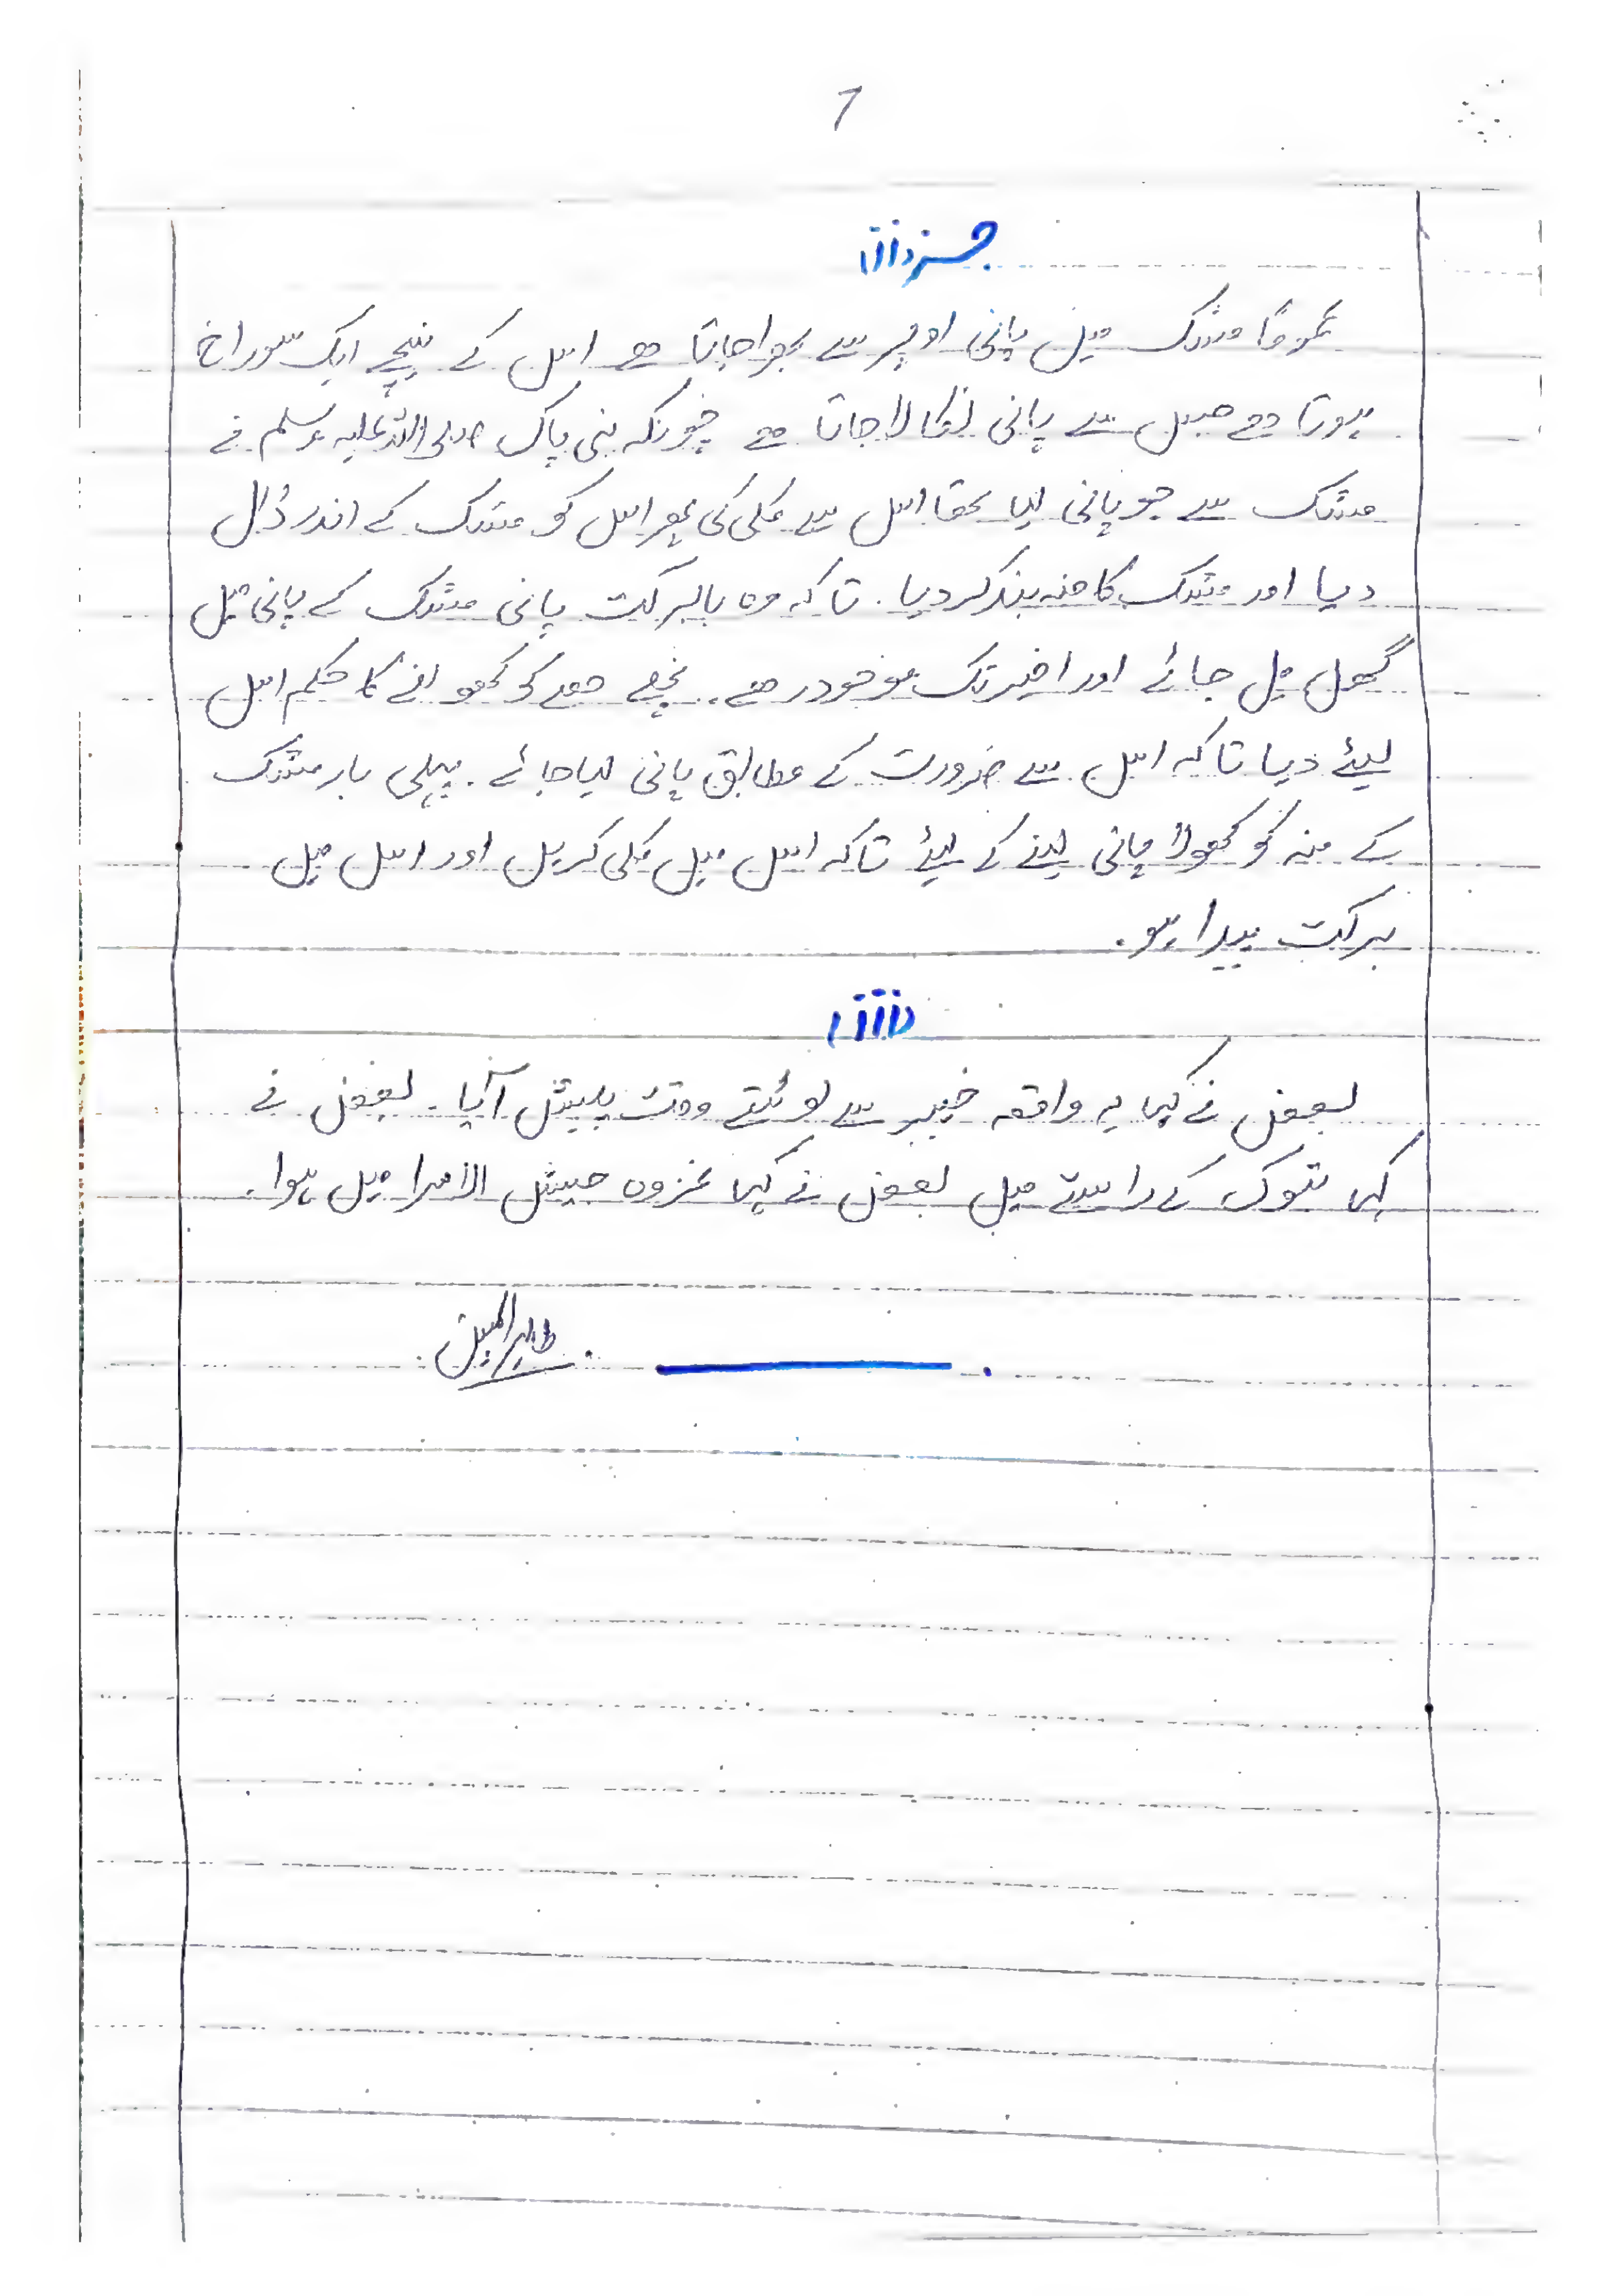 7
عموماً مشک میں پانی اوپر سے بھرا جاتا ھے اس کے نیچے ایک سوراخ
ہوتا ھے جس سے پانی نکالا جاتا ھے چونکہ نبی پاک صلی اللہ علیہ وسلم نے
مشک سے جو پانی لیا تھا اس سے کلی کی پھر اس کو مشک کے اندر ڈال
دیا اور مشک کا منہ بند کر دیا. تاکہ وہ بابرکت پانی مشک کے پانی میں
گھل مل جائے اور اخیر تک موجود رھے. نچلے حصے کو کھولنے کا حکم اس
لیئے دیا تاکہ اس سے ضرورت کے مطابق پانی لیا جائے. پہلی بار مشک
کے منہ کو کھولا پانی لینے کے لیئے تاکہ اس میں کلی کریں اور اس میں
برکت پیدا ہو.
بعض نے کہا یہ واقعہ خیبر سے لوٹتے وقت پیش آیا. بعض نے
کہا تبوک کے راستے میں بعض نے کہا غزوہ جیش الامرا میں ہوا.